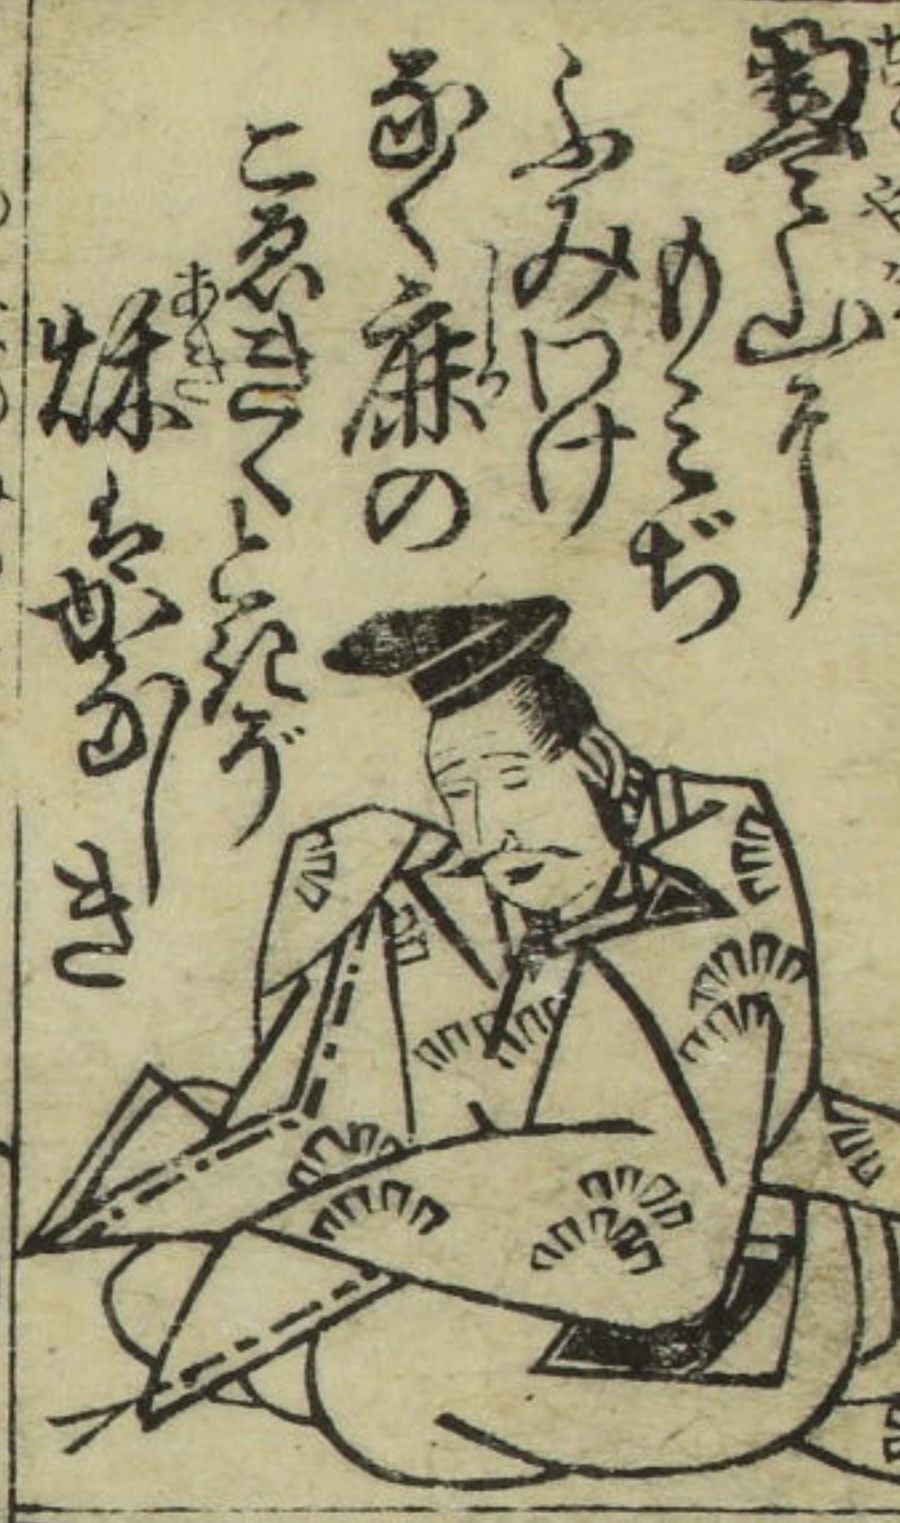 奥山に
もみぢ
ふみわけ
なく鹿の
しか
こゑきくときぞ
秌はかなしき
あき